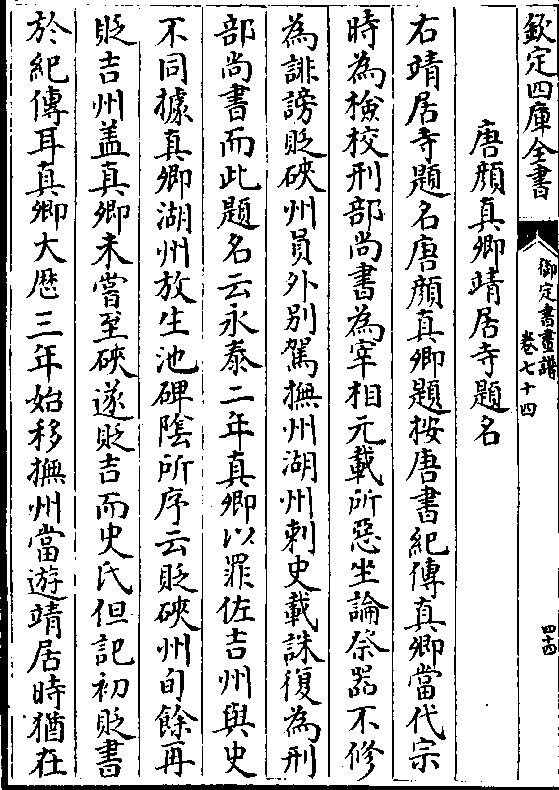 欽定四庫全書
御定書畫譜
卷七十四
四十四
唐顔真卿靖居寺題名
右靖居寺題名唐顔真卿題按唐書紀傳真卿當代宗
時為檢校刑部尚書為宰相元載所惡坐論祭器不修
為誹謗貶硤州員外别駕撫州湖州刺史載誅復為刑
部尚書而此題名云永泰二年真卿以罪佐吉州與史
不同據真卿湖州放生池碑陰所序云貶硤州旬餘再
貶吉州盖真卿未嘗至硤遂貶吉而史氏但記初貶書
於紀傳耳真卿大厯三年始移撫州當遊靖居時猶在